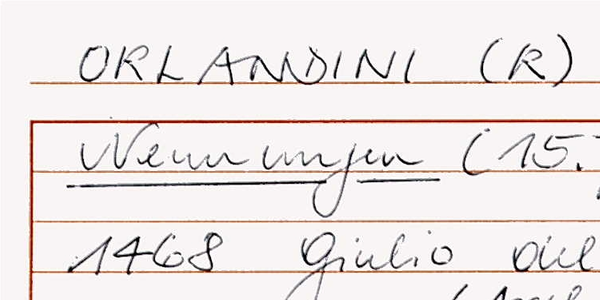 ORLANDINI (R)
Nennungen (15.
1468 Giulio del